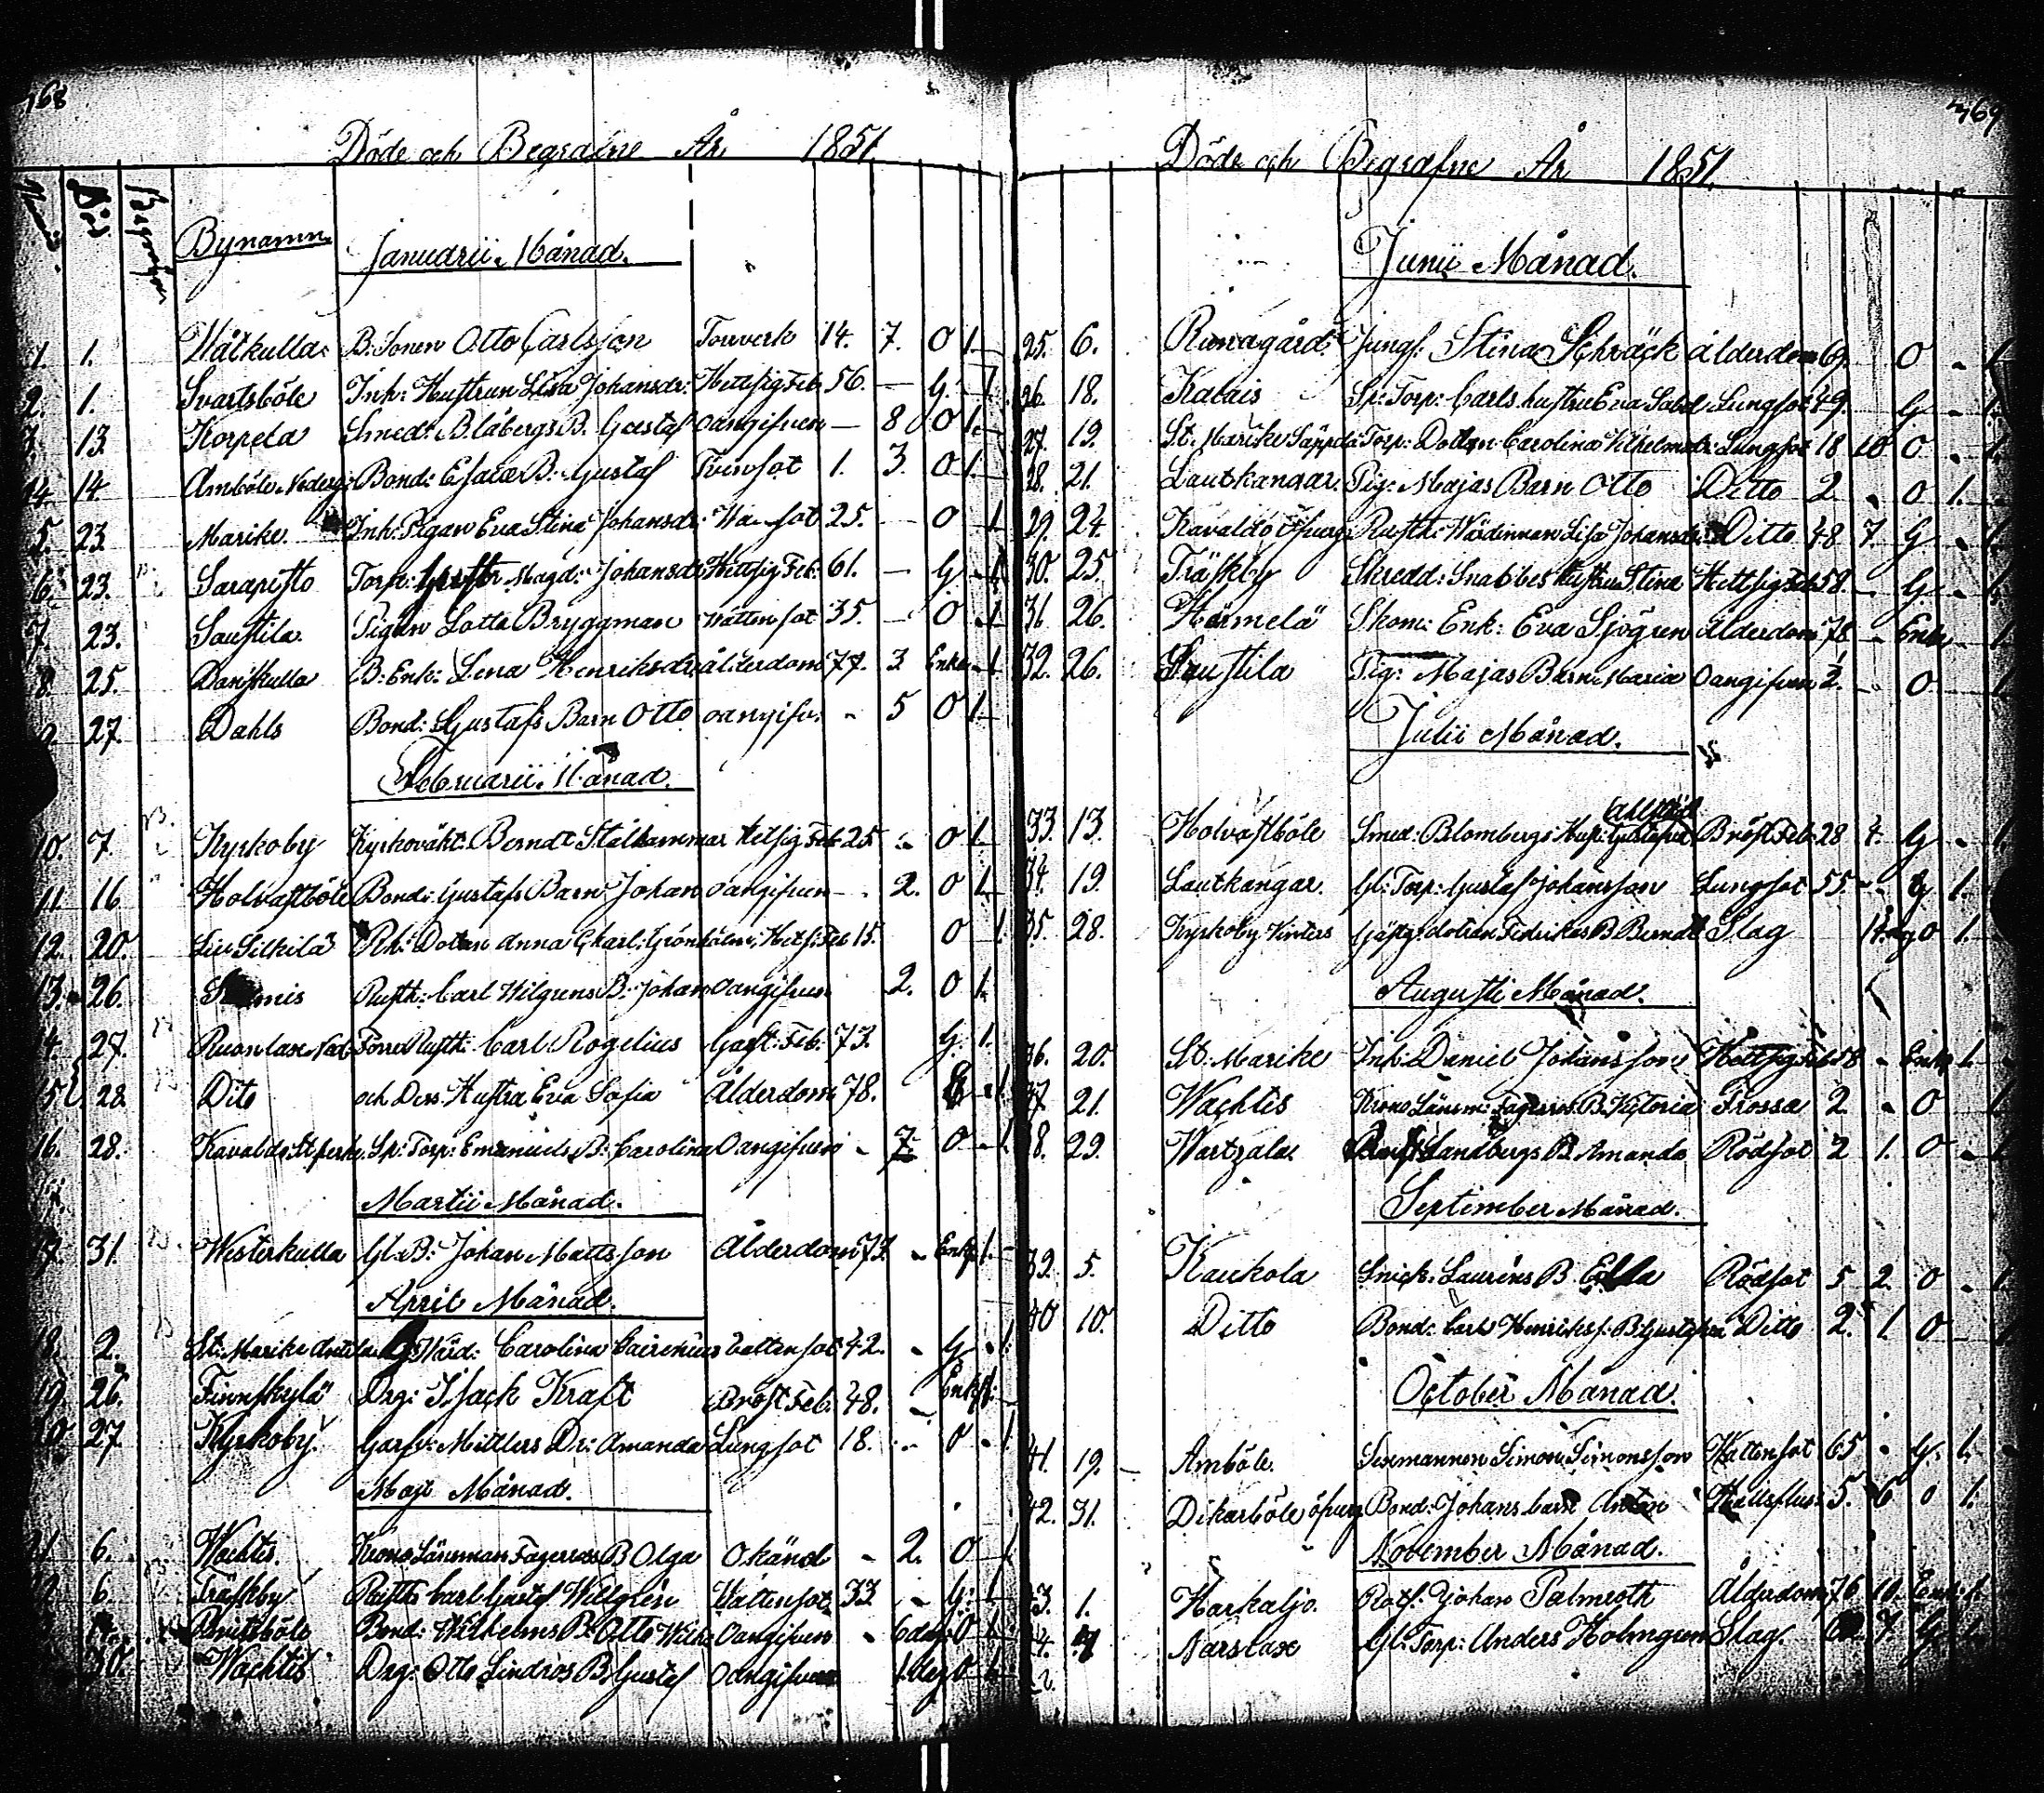 168
Döde och Begrafne År 1851.
Död Begrafne Bynamn Januarii Månad.
1. 1. Wåtkulla B: Sonen Otto Carlsson Torverk 14. 7. O 1.
2. 1. Svartsböle Inh: Hustrun Lisa Johansdr: Hettsig Feb. 56. — G. 1.
3. 13. Korpela Smed: Blåbergs B. Gustaf oangifven — 8 O 1.
4. 14. Amböle Nederg: Bond: Esaia B: Gustaf Tvinsot 1. 3. O 1.
5. 23. Marike Inh: Pigan Eva Stina Johansdr: sot 25. — O 1
6. 23. Sarapisto Torp: Magd: Johansdr Hettsig Feb: 61. — G 1
7. 23. Saustila Pigan Lotta Bryggman Vattensot 35. — O 1
8. 25. Danskulla B: Enk: Lena Henriksdr ålderdom 77. 3 Enka 1
27. Dahls Bond: Gustafs Barn Otto oangifv: - 5 O 1.
Februarii Månad.
10. 7. Kyrkoby Kyrkovakt: Berndt Stålhammar hetsig Feb 25 - O 1.
11. 16 Holvastböle Bond: Gustafs Barn Johan oangifven - 2. O 1.
12. 20. Silkilä Rh: Dottren Anna Charl: Grönholm Hets: Feb 15. O 1.
13. 26. Rusth: Carl Wilgrens B: Johan Oangifven 2. O 1.
4. 27. Ruonlax Ned. Förre Rusth: Carl Rogelius Gast: Feb: 73. G. 1.
15. 28. Dito och Dess Hustru Eva Sofia Ålderdom 78. G - 1.
16. 28. Kavaldo St: Sp: Torp: Emanuels B: Carolina Oangifven - 7. O - 1.
Martii Månad.
17. 31. Westerkulla Gl: B: Johan Mattsson Ålderdom 73 - Enkl 1.
April Månad.
18. 2. St: Marike Anttila Wärd: Carolina Cairenius Vattensot 42. - G - 1.
19. 26. Finnskylä Drg: Isack Kraft Bröst Feb. 48. - Enkl 1.
0 27 Kyrkoby Garfv: Millers Dr: Amanda Lungsot 18. - O - 1
Maji Månad.
21. 6. Wachtis Krono Länsman Fagerroos B Olga Okänd - 2. O 1.
2 6. Träskby Rusth: Carl Gustaf Willgren Vattensot 33. - G: 1
Bond: Wilhelms B: Otto Wilh: Oangifven - 6 dag O 1
30. Wachtis Drg: Otto Lindros B: Gustaf Oangifven 1 dag O 1.
169
Döde och Begrafne År 1851.
Junii Månad.
25. 6. Runagård Jungf: Stina Schräck ålderdom 69. O - 1.
26. 18. Kalais Sp: Torp: Carls hustru Eva Lungsot 49. G - 1.
27. 19. St. Marike Säppälä Torp: Dottren Carolina Vilhelmsdr: Lungsot 18 10 O - 1.
28. 21. Lautkangar. Pig: Majas Barn Otto Ditto 2 - O 1.
29. 24. Kavaldo Öfverg Rusth: Wärdinnan Lisa Johansdr: Ditto 48 7. G - 1.
30. 25. Träskby Skredd: Snabbes hustru Stina Hettsig Feb 58. - G - 1.
31. 26. Härmelä Skom: Enk: Eva Sjögren ålderdom 78 - Enk 1
32. 26. Saustila Pig: Majas Barn Maria Oangifven 2. - O 1
Julii Månad.
33. 13. Holvastböle Smed: Blombergs Hust: Gustafva Bröst Feb. 28 4. G - 1
34. 19. Lautkangar. Gl: Torp: Gustaf Johansson Lungsot 55 - - G 1.
35. 28. Kyrkoby Vinters dottren Fredrikas B Berndt Slag 14. dag O 1.
Augusti Månad.
36. 20. St: Marike Inh: Daniel Johansson Hettsig Feb 58 - Enkl 1.
37. 21. Wachtis Krono Länsm: Fagerroos B. Victoria Frossa 2. - O 1
38. 29. Wartzala Rusth: Sandbergs B Amanda Rödsot 2 1. O - 1.
September Månad.
39. 5. Kaukola Snick: Laurens B. Rödsot 5 2. O - 1
40 10. Ditto Bond: Carl Henrikss: B: Gustafva Ditto 2. 1. O
October Månad.
41. 19. - Amböle. Sexmannen Simon Simonsson Wattensot 65 - G. 1.
42. 31. Dikarböle öfverg Bond: Johans barn Anton Hallsfluss 5. 6 O 1.
November Månad.
43. 1. Harkaljo. Rotf: Johan Palmroth Ålderdom 76 10. Enkl: 1.
44. 7 Närslax Gl: Torp: Anders Holmgren Slag. 7 G. 1.